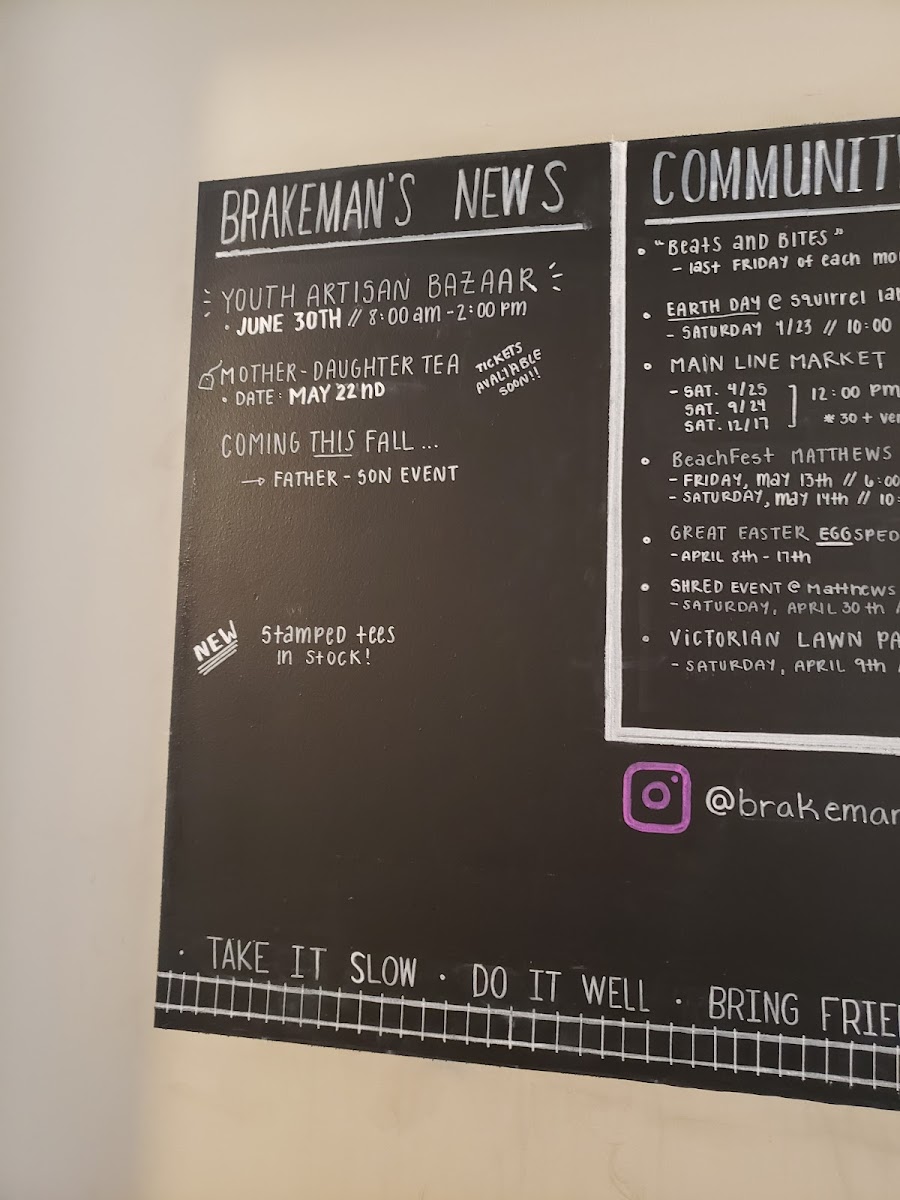 BRAKEMAN'S NEWS
YOUTH ARTISAN BAZAAR
• JUNE 30TH // 8:00 am - 2:00 pm
MOTHER-DAUGHTER TEA
• DATE: MAY 22ND
TICKETS
AVALIABLE
SOON!!
COMING THIS FALL...
→ FATHER-SON EVENT
NEW
Stamped tees
IN STOCK!
COMMUNIT
• "Beats and BITES"
- last FRIDAY of each mo
• EARTH DAY @ squirrel la
- SATURDAY 4/23 // 10:00
• MAIN LINE MARKET
- SAT. 4/25
SAT. 9/24
SAT. 12/17
12:00 pm
* 30 + ve
• BeachFest MATTHEWS
- FRIDAY, may 13th // 6:00
- SATURDAY, may 14th // 10:
• GREAT EASTER EGGSPED
- APRIL 8th - 17th
• SHRED EVENT @ Matthews
- SATURDAY, APRIL 30th /
• VICTORIAN LAWN PA
- SATURDAY, APRIL 9th /
@brakeman
• TAKE IT SLOW • DO IT WELL • BRING FRIE